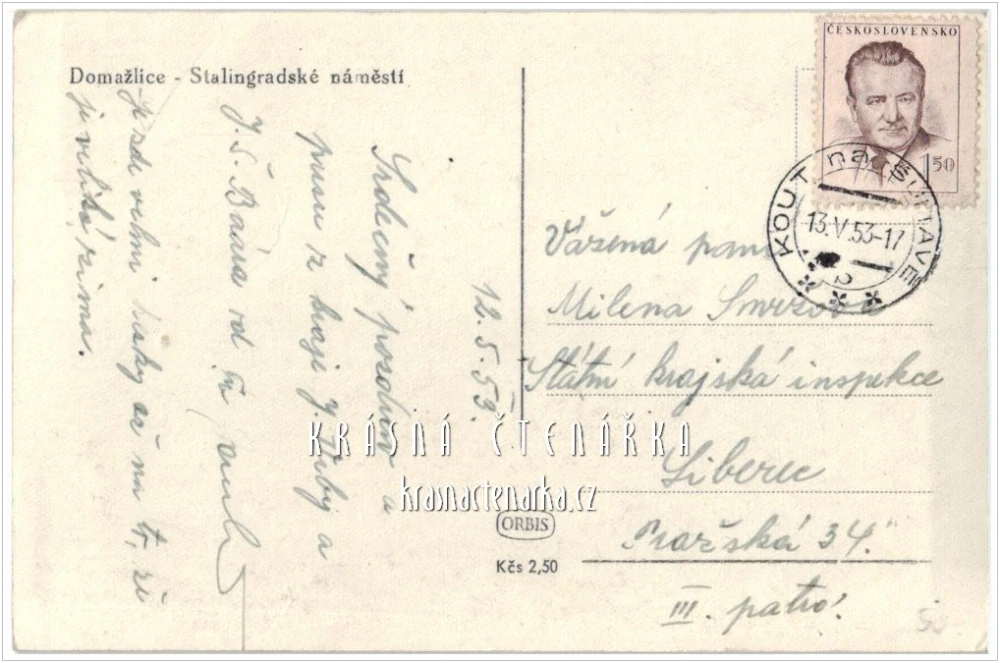 Domažlice - Stalingradské náměstí
ČESKOSLOVENSKO
1,50
KOUT na ŠUMAVĚ
13.V.53-17
12.5.53.
Srdečný pozdrav a
pusu z kraje J. Vrby a
J. Š. Baara od
Je zde velmi hezky až na to, že
je veliká zima.
Vážená paní
Milena
Státní krajská inspekce
Liberec
Pražská 34.
III. patro.
ORBIS
Kčs 2,50
KRÁSNÁ ČTENÁŘKA
krasnactenarka.cz